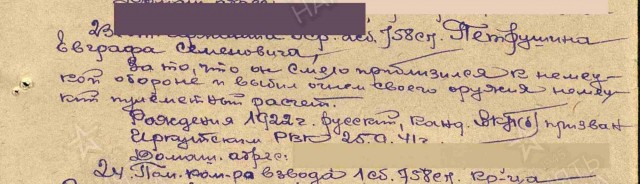 23. 758сп. Петрушина
Евграфа Семеновича,
За то, что он смело приблизился к немец-
кой обороне и выбил огнем своего оружия немец-
кий пулеметный расчет.
Рождения 1922г. русский, канд. ВКП(б) призван
Иркутским РВК 41г.
Домаш. адрес:
24. Пом. ком-ра взвода 1сб. 758сп. кр-ца